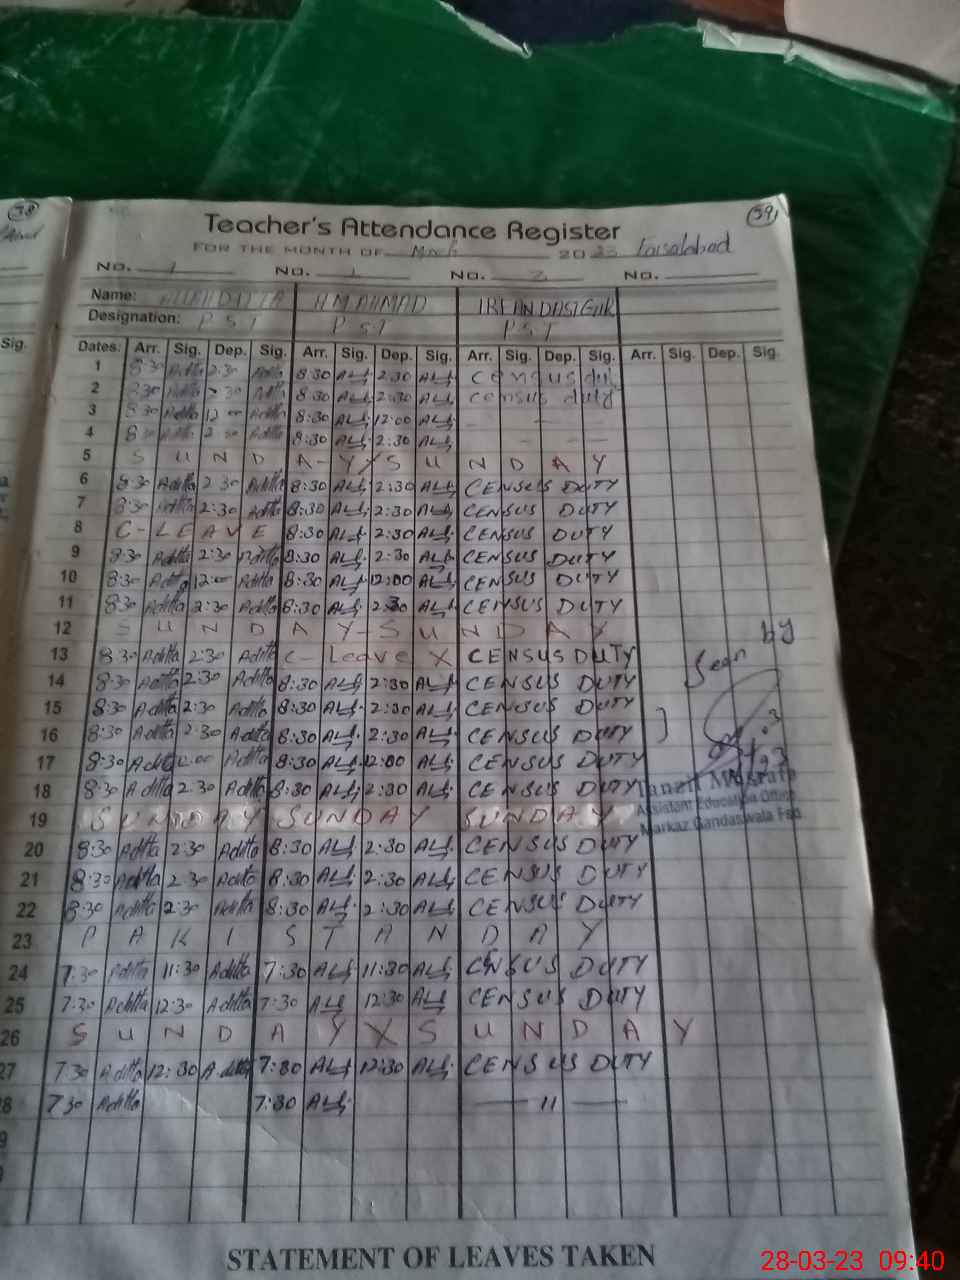 38
59
Teacher's Attendance Register
FOR THE MONTH OF March 2023 Faisalabad
No. 1 No. 1 No. 2 No.
Name: ALLAH DITTA H.M AHMAD IRFAN DASTGIR
Designation: P S T P S T P S T
Sig. Dates: Arr. Sig. Dep. Sig. Arr. Sig. Dep. Sig. Arr. Sig. Dep. Sig. Arr. Sig. Dep. Sig.
1 8:30 Aditta 2:30 Aditta 8:30 2:30 census duty
2 8:30 Aditta 2:30 Aditta 8:30 2:30 census duty
3 8:30 Aditta 12:00 Aditta 8:30 12:00 — — —
4 8:30 Aditta 2:30 Aditta 8:30 2:30 — — —
5 S U N D A - Y X S U N D A Y
6 8:30 Aditta 2:30 Aditta 8:30 2:30 CENSUS DUTY
7 8:30 Aditta 2:30 Aditta 8:30 2:30 CENSUS DUTY
8 C - L E A V E 8:30 2:30 CENSUS DUTY
9 8:30 Aditta 2:30 Aditta 8:30 2:30 CENSUS DUTY
10 8:30 Aditta 12:00 Aditta 8:30 12:00 CENSUS DUTY
11 8:30 Aditta 2:30 Aditta 8:30 2:30 CENSUS DUTY
12 S U N D A Y - S U N D A Y
13 8:30 Aditta 2:30 Aditta C - Leave X CENSUS DUTY
Seen by
14 8:30 Aditta 2:30 Aditta 8:30 2:30 CENSUS DUTY
15 8:30 Aditta 2:30 Aditta 8:30 2:30 CENSUS DUTY
16 8:30 Aditta 2:30 Aditta 8:30 2:30 CENSUS DUTY
17 8:30 Aditta 12:00 Aditta 8:30 12:00 CENSUS DUTY
18 8:30 Aditta 2:30 Aditta 8:30 2:30 CENSUS DUTY
Tanzil Mustafa
Assistant Education Officer
Markaz Gandaswala Fsd
19 S U N D A Y S U N D A Y S U N D A Y
20 8:30 Aditta 2:30 Aditta 8:30 2:30 CENSUS DUTY
21 8:30 Aditta 2:30 Aditta 8:30 2:30 CENSUS DUTY
22 8:30 Aditta 2:30 Aditta 8:30 2:30 CENSUS DUTY
23 P A K I S T A N D A Y
24 7:30 Aditta 11:30 Aditta 7:30 11:30 CENSUS DUTY
25 7:30 Aditta 12:30 Aditta 7:30 12:30 CENSUS DUTY
26 S U N D A Y X S U N D A Y
27 7:30 Aditta 12:30 Aditta 7:30 12:30 CENSUS DUTY
8 7:30 Aditta 7:30 — 11 —
9
STATEMENT OF LEAVES TAKEN
28-03-23 09:40